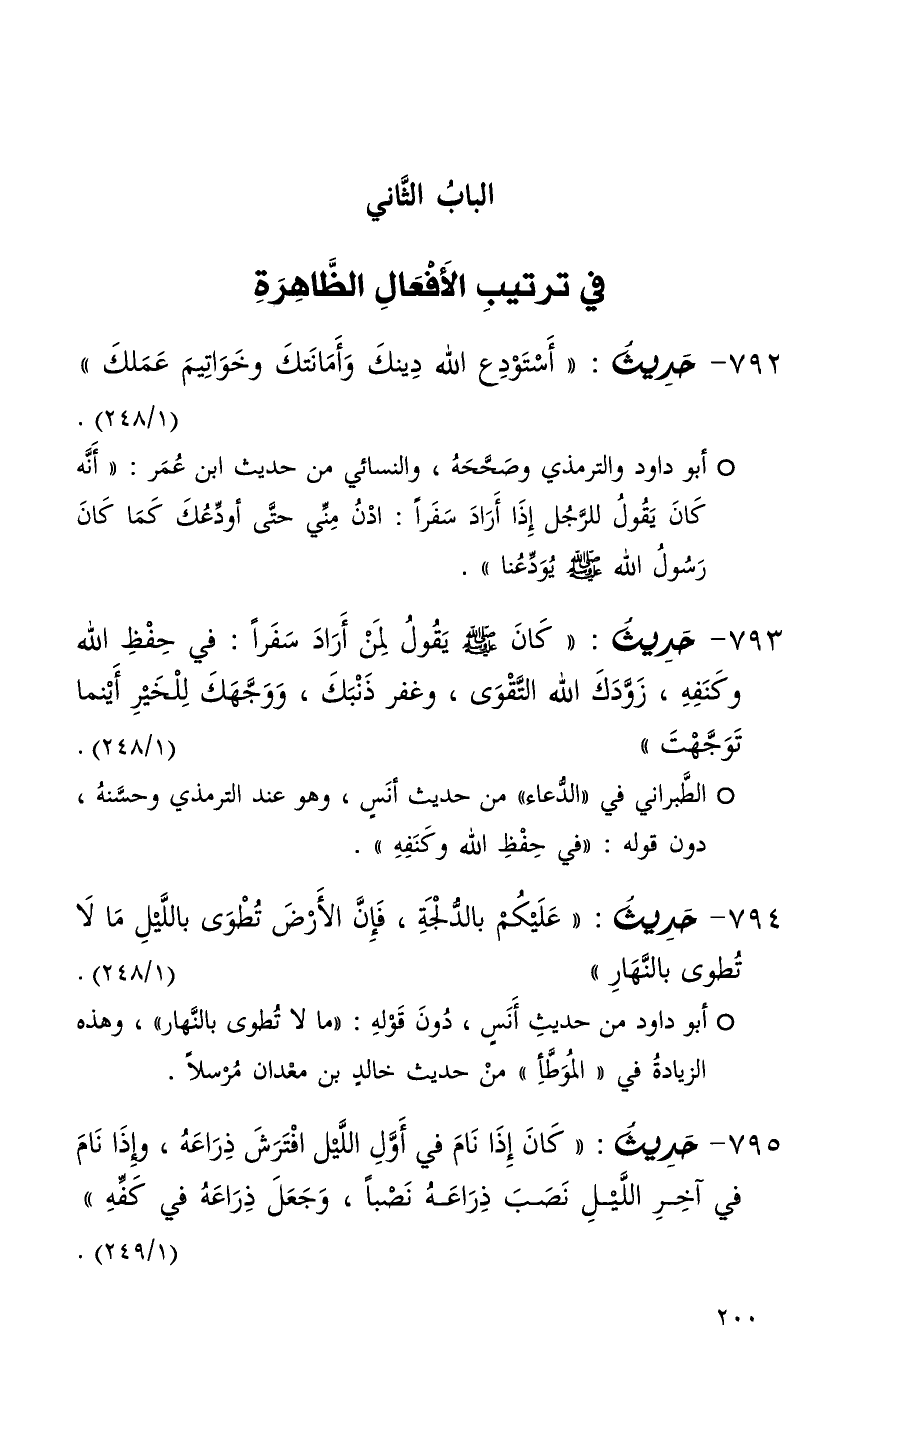 البابُ الثَّاني
في ترتيبِ الأَفْعَالِ الظَّاهِرَةِ
٧٩٢- حَدِيثُ : « أَسْتَوْدِع الله دِينكَ وَأَمَانَتكَ وخَوَاتِيمَ عَمَلكَ »
(٢٤٨/١) .
○ أبو داود والترمذي وصَحَّحَهُ ، والنسائي من حديث ابن عُمَر : « أَنَّه
كَانَ يَقُولُ للرَّجُل إِذَا أَرَادَ سَفَراً : ادْنُ مِنِّي حتَّى أودِّعُكَ كَمَا كَانَ
رَسُولُ الله ﷺ يُوَدِّعُنا » .
٧٩٣- حَدِيثُ : « كَانَ ﷺ يَقُولُ لِمَنْ أَرَادَ سَفَراً : في حِفْظِ الله
وكَنَفِهِ ، زَوَّدَكَ الله التَّقْوَى ، وغفر ذَنْبَكَ ، وَوَجَّهَكَ لِلْخَيْرِ أَيْنما
تَوَجَّهْتَ » (٢٤٨/١) .
○ الطَّبراني في «الدُّعاء» من حديث أنَسٍ ، وهو عند الترمذي وحسَّنهُ ،
دون قوله : «في حِفْظِ الله وكَنَفِهِ » .
٧٩٤- حَدِيثُ : « عَلَيْكُمْ بالدُّلْجَةِ ، فَإِنَّ الأَرْضَ تُطْوَى باللَّيْلِ مَا لَا
تُطوى بالنَّهَارِ » (٢٤٨/١) .
○ أبو داود من حديثِ أَنَسٍ ، دُونَ قَوْلهِ : «ما لا تُطوى بالنَّهار» ، وهذه
الزيادةُ في « المُوَطَّأِ » منْ حديث خالدٍ بن معْدان مُرْسلاً .
٧٩٥- حَدِيثُ : « كَانَ إِذَا نَامَ في أَوَّلِ اللَّيْل افْتَرَشَ ذِرَاعَهُ ، وإِذَا نَامَ
في آخِـرِ اللَّيْـلِ نَصَـبَ ذِرَاعَـهُ نَصْباً ، وَجَعَلَ ذِرَاعَهُ في كَفِّهِ »
(٢٤٩/١) .
٢٠٠